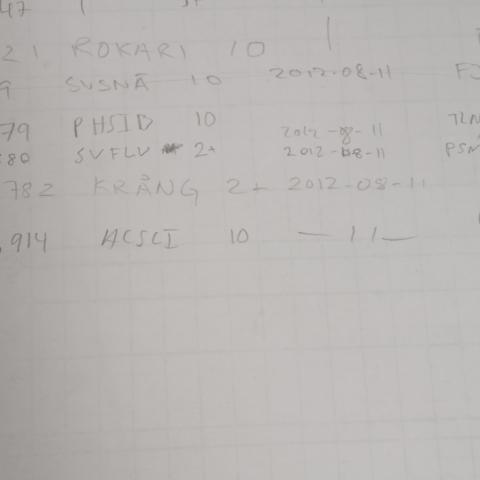 47
21 ROKARI 10
9 SVSNÄ 10 2012-08-11
79 PHSID 10 2012-08-11 TLN
80 SVFLV 2+ 2012-08-11 PSN
782 KRÅNG 2+ 2012-08-11
914 ACSCI 10 —11—